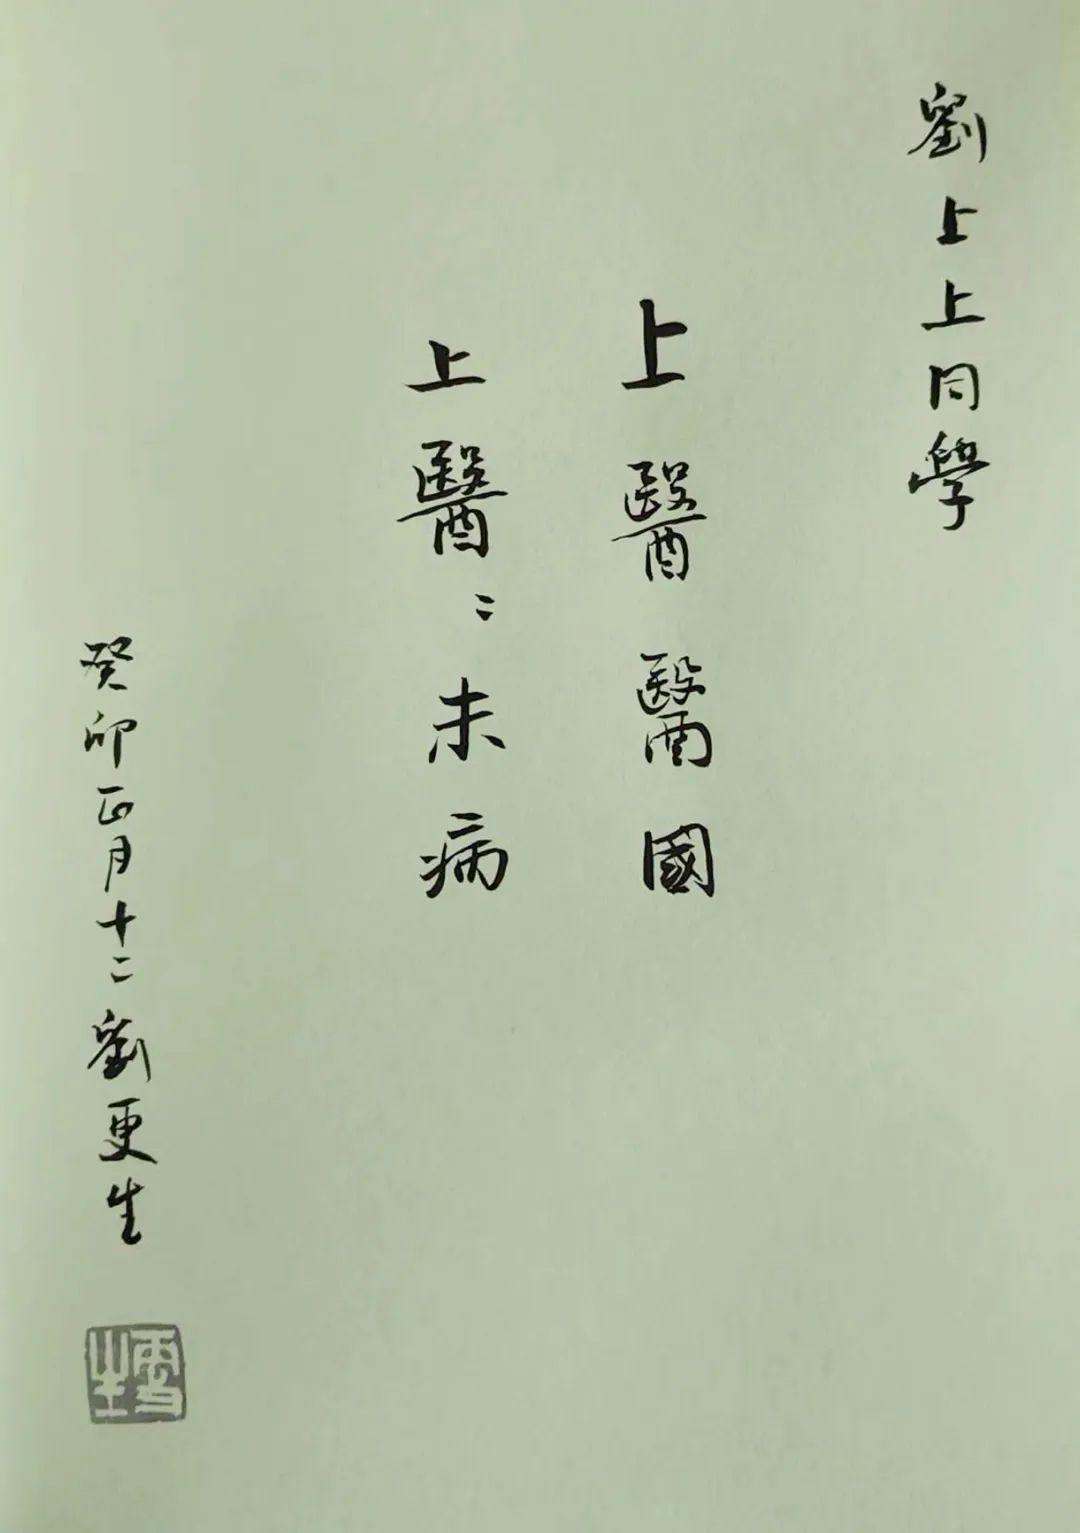 劉上上同學
上醫醫國
上醫〻未病
癸卯正月十二劉更生